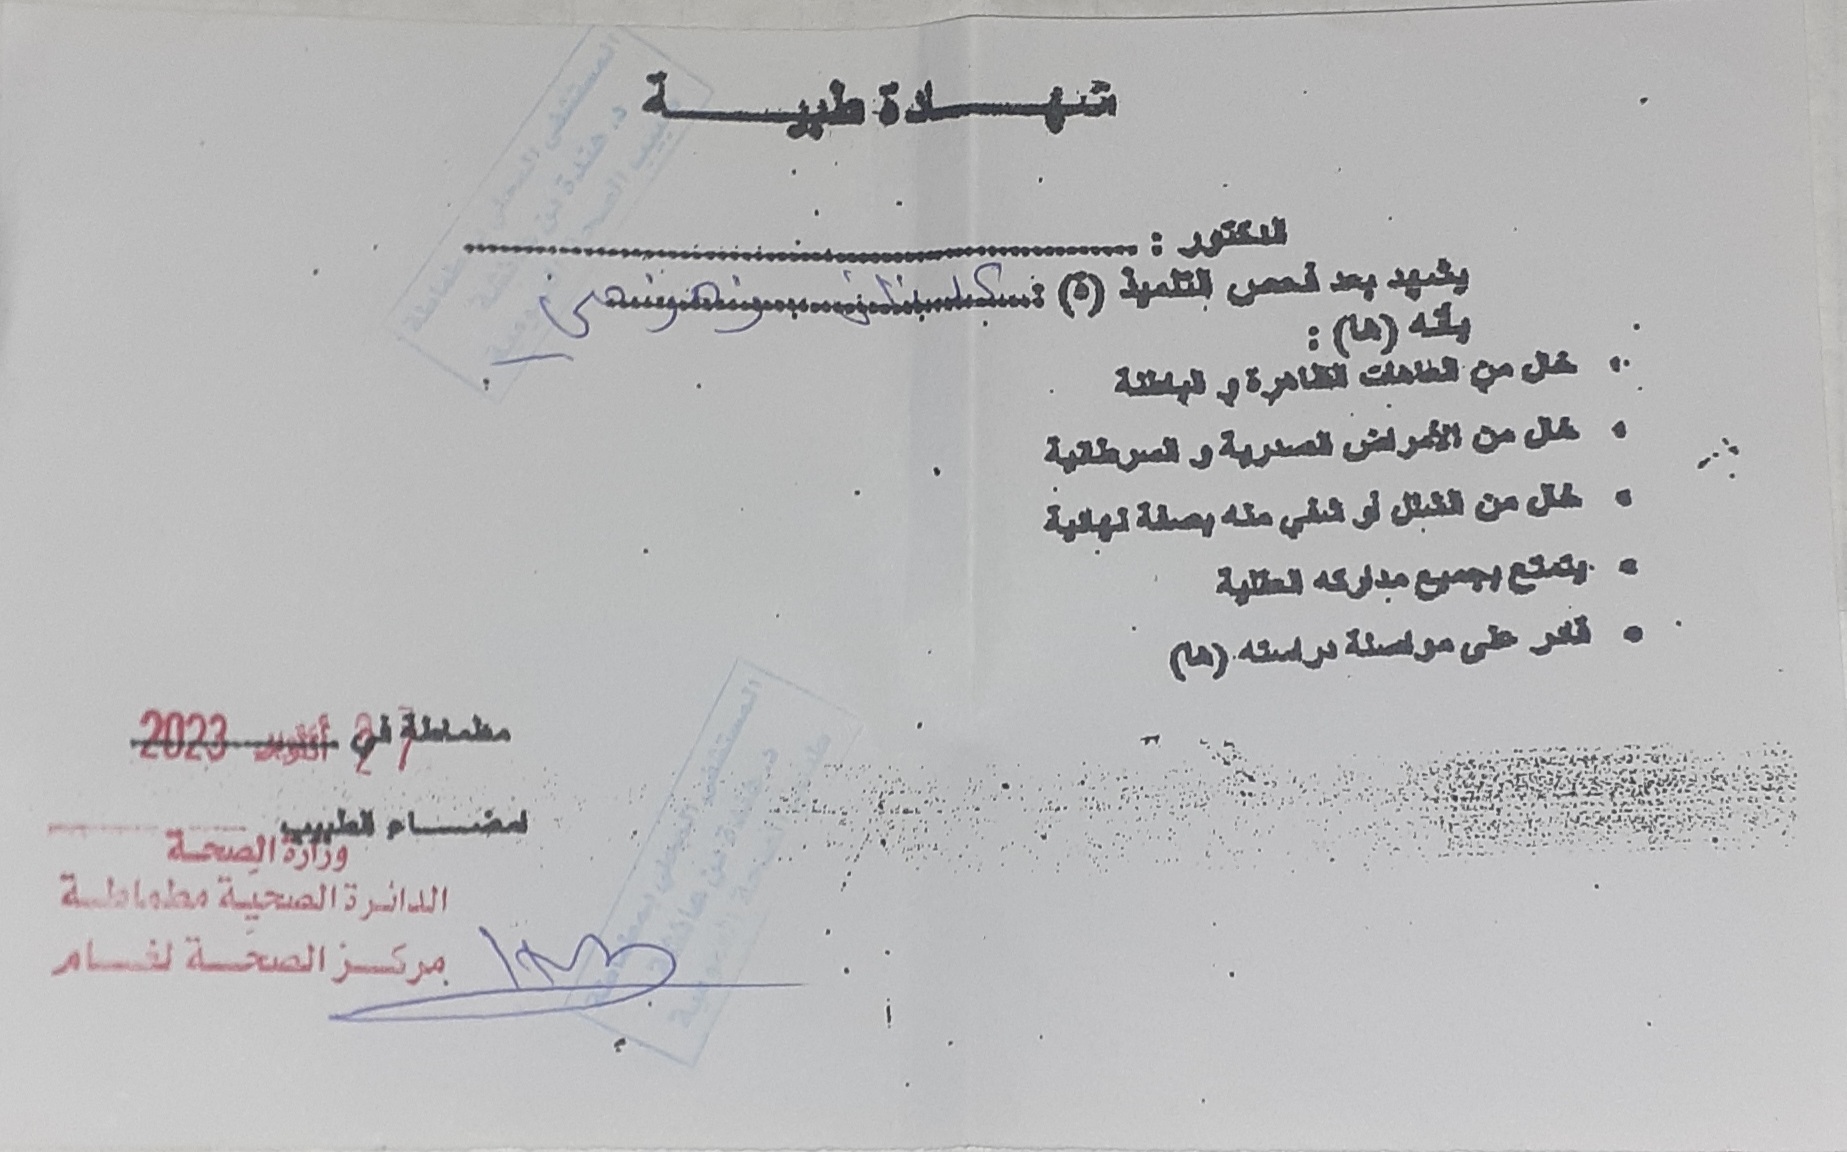 شهـــادة طبيـــة
الدكتور :
يشهد بعد فحص التلميذ (ة) :
بأنه (ها) :
• خال من العاهات الظاهرة و الباطنة
• خال من الأمراض الصدرية و السرطانية
• خال من الشلل أو شفي منه بصفة نهائية
• يتمتع بجميع مداركه العقلية
• قادر على مواصلة دراسته (ها)
مطماطة في 27 أكتوبر 2023
امضـــاء الطبيب
وزارة الصحة
الدائرة الصحية مطماطة
مركز الصحة لغام
المستشفى المحلي بمطماطة
د. هندة بن
طبيب الصحة العمومية
المستشفى المحلي بمطماطة
د. هندة بن
طبيب الصحة العمومية